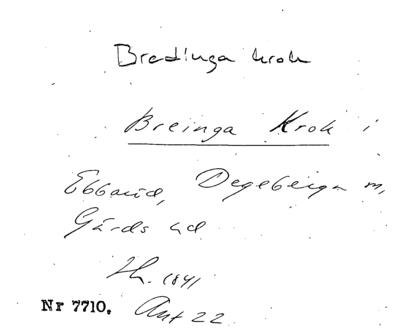 Bredinga krok
Breinga Krok i
Ebbarid, Degeberga m,
Gärds hd
1841
Nr 7710. Ant 22